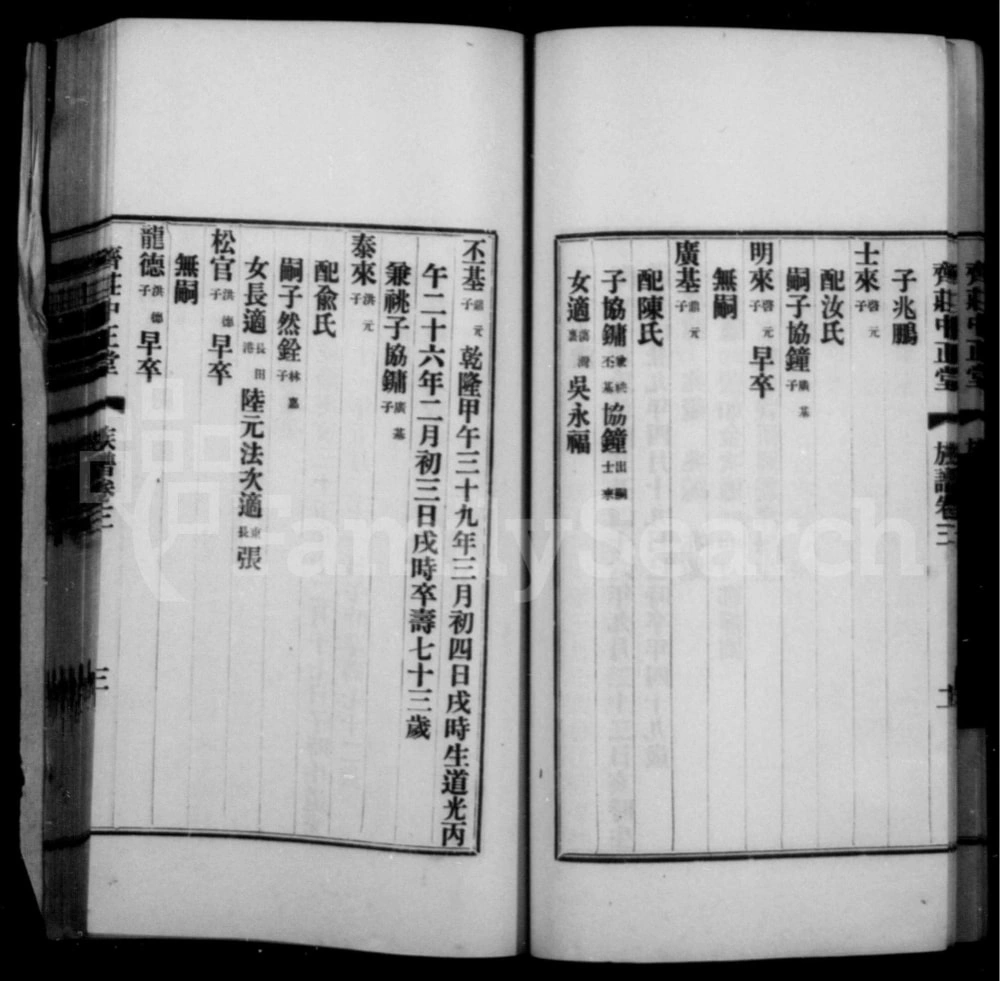 齊莊中正堂 族譜卷三
子兆鵬
士來 啓元子
配汝氏
嗣子協鐘 廣基子
明來 啓元子 早卒
無嗣
廣基 鼎元子
配陳氏
子協鏞 兼祧丕基 協鐘 出嗣士來
女適 灣裏 吳永福
丕基 鼎元子 乾隆甲午三十九年三月初四日戌時生道光丙
午二十六年二月初三日戌時卒壽七十三歲
兼祧子協鏞 廣基子
泰來 洪元子
配俞氏
嗣子然銓 林嘉子
女長適 長田港 陸元法次適 東長 張
松官 洪德子 早卒
無嗣
龍德 洪德子 早卒
齊莊中正堂 族譜卷三 三
FamilySearch